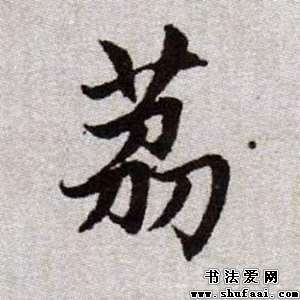 茘
书法爱网
www.shufaai.com